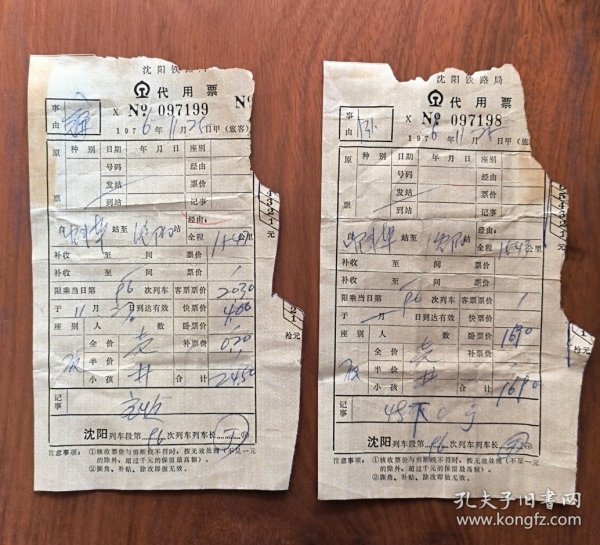 沈阳铁路局
代用票
事由
X № 097199
№
1976年11月25日甲(旅客
原票
种别 日期 年月日 座别
号码 经由
发站 票价
到站 记事
经由:
自 站至沈阳站 全程 1540 公里
补收 至 间 票价
限乘当日第96次列车 客票票价 2030
于11月 日到达有效 快票价 400
座别 人数 卧票价
全价 壹 补票费 020
半价
小孩 合计 2450
记事
沈阳列车段第96次列车列车长
注意事项:①核收票价与剪断线不符时,按无效处理(不足一元
的除外,超过千元的保留最高额)。
②撕角、补贴、涂改即做无效。
元
拾元
沈阳铁路局
代用票
事由
X № 097198
1976年11月25日甲(旅
原票
种别 日期 年月日 座别
号码 经由
发站 票价
到站 记事
经由:
自 站至沈阳站 全程 1540 公里
补收 至 间 票价
限乘当日第96次列车 客票票价
于 月 日到达有效 快票价
座别 人数 卧票价 1690
全价 壹 补票费
半价
小孩 合计 1690
记事
沈阳列车段第96次列车列车长
注意事项:①核收票价与剪断线不符时,按无效处理(不足一
元的除外,超过千元的保留最高额)。
②撕角、补贴、涂改即做无效。
元
拾元
孔夫子旧书网
www.kongfz.com